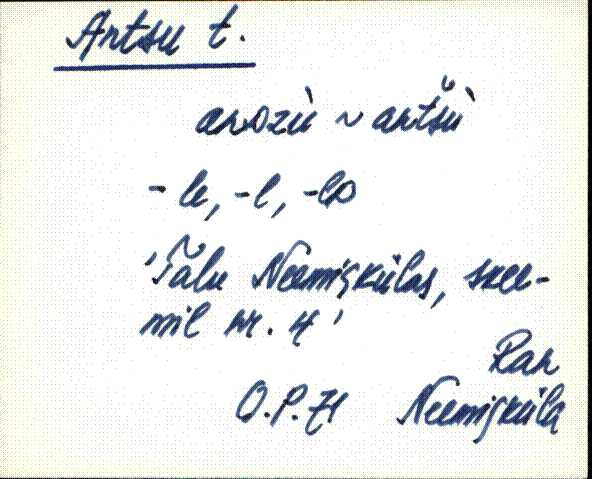 Artsu t.
arᴅzù ~ artšù
-le, -l, -lᴅ
'Talu Neemiskülas, skee-
mil nr. 4'
Ran
O.P. 71 Neemisküla